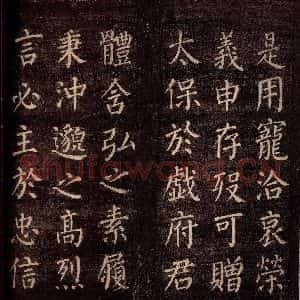 是用寵洽哀榮
義申存殁可贈
太保於戯府君
體含弘之素履
秉沖邈之高烈
言必主於忠信
Shufawang.CN